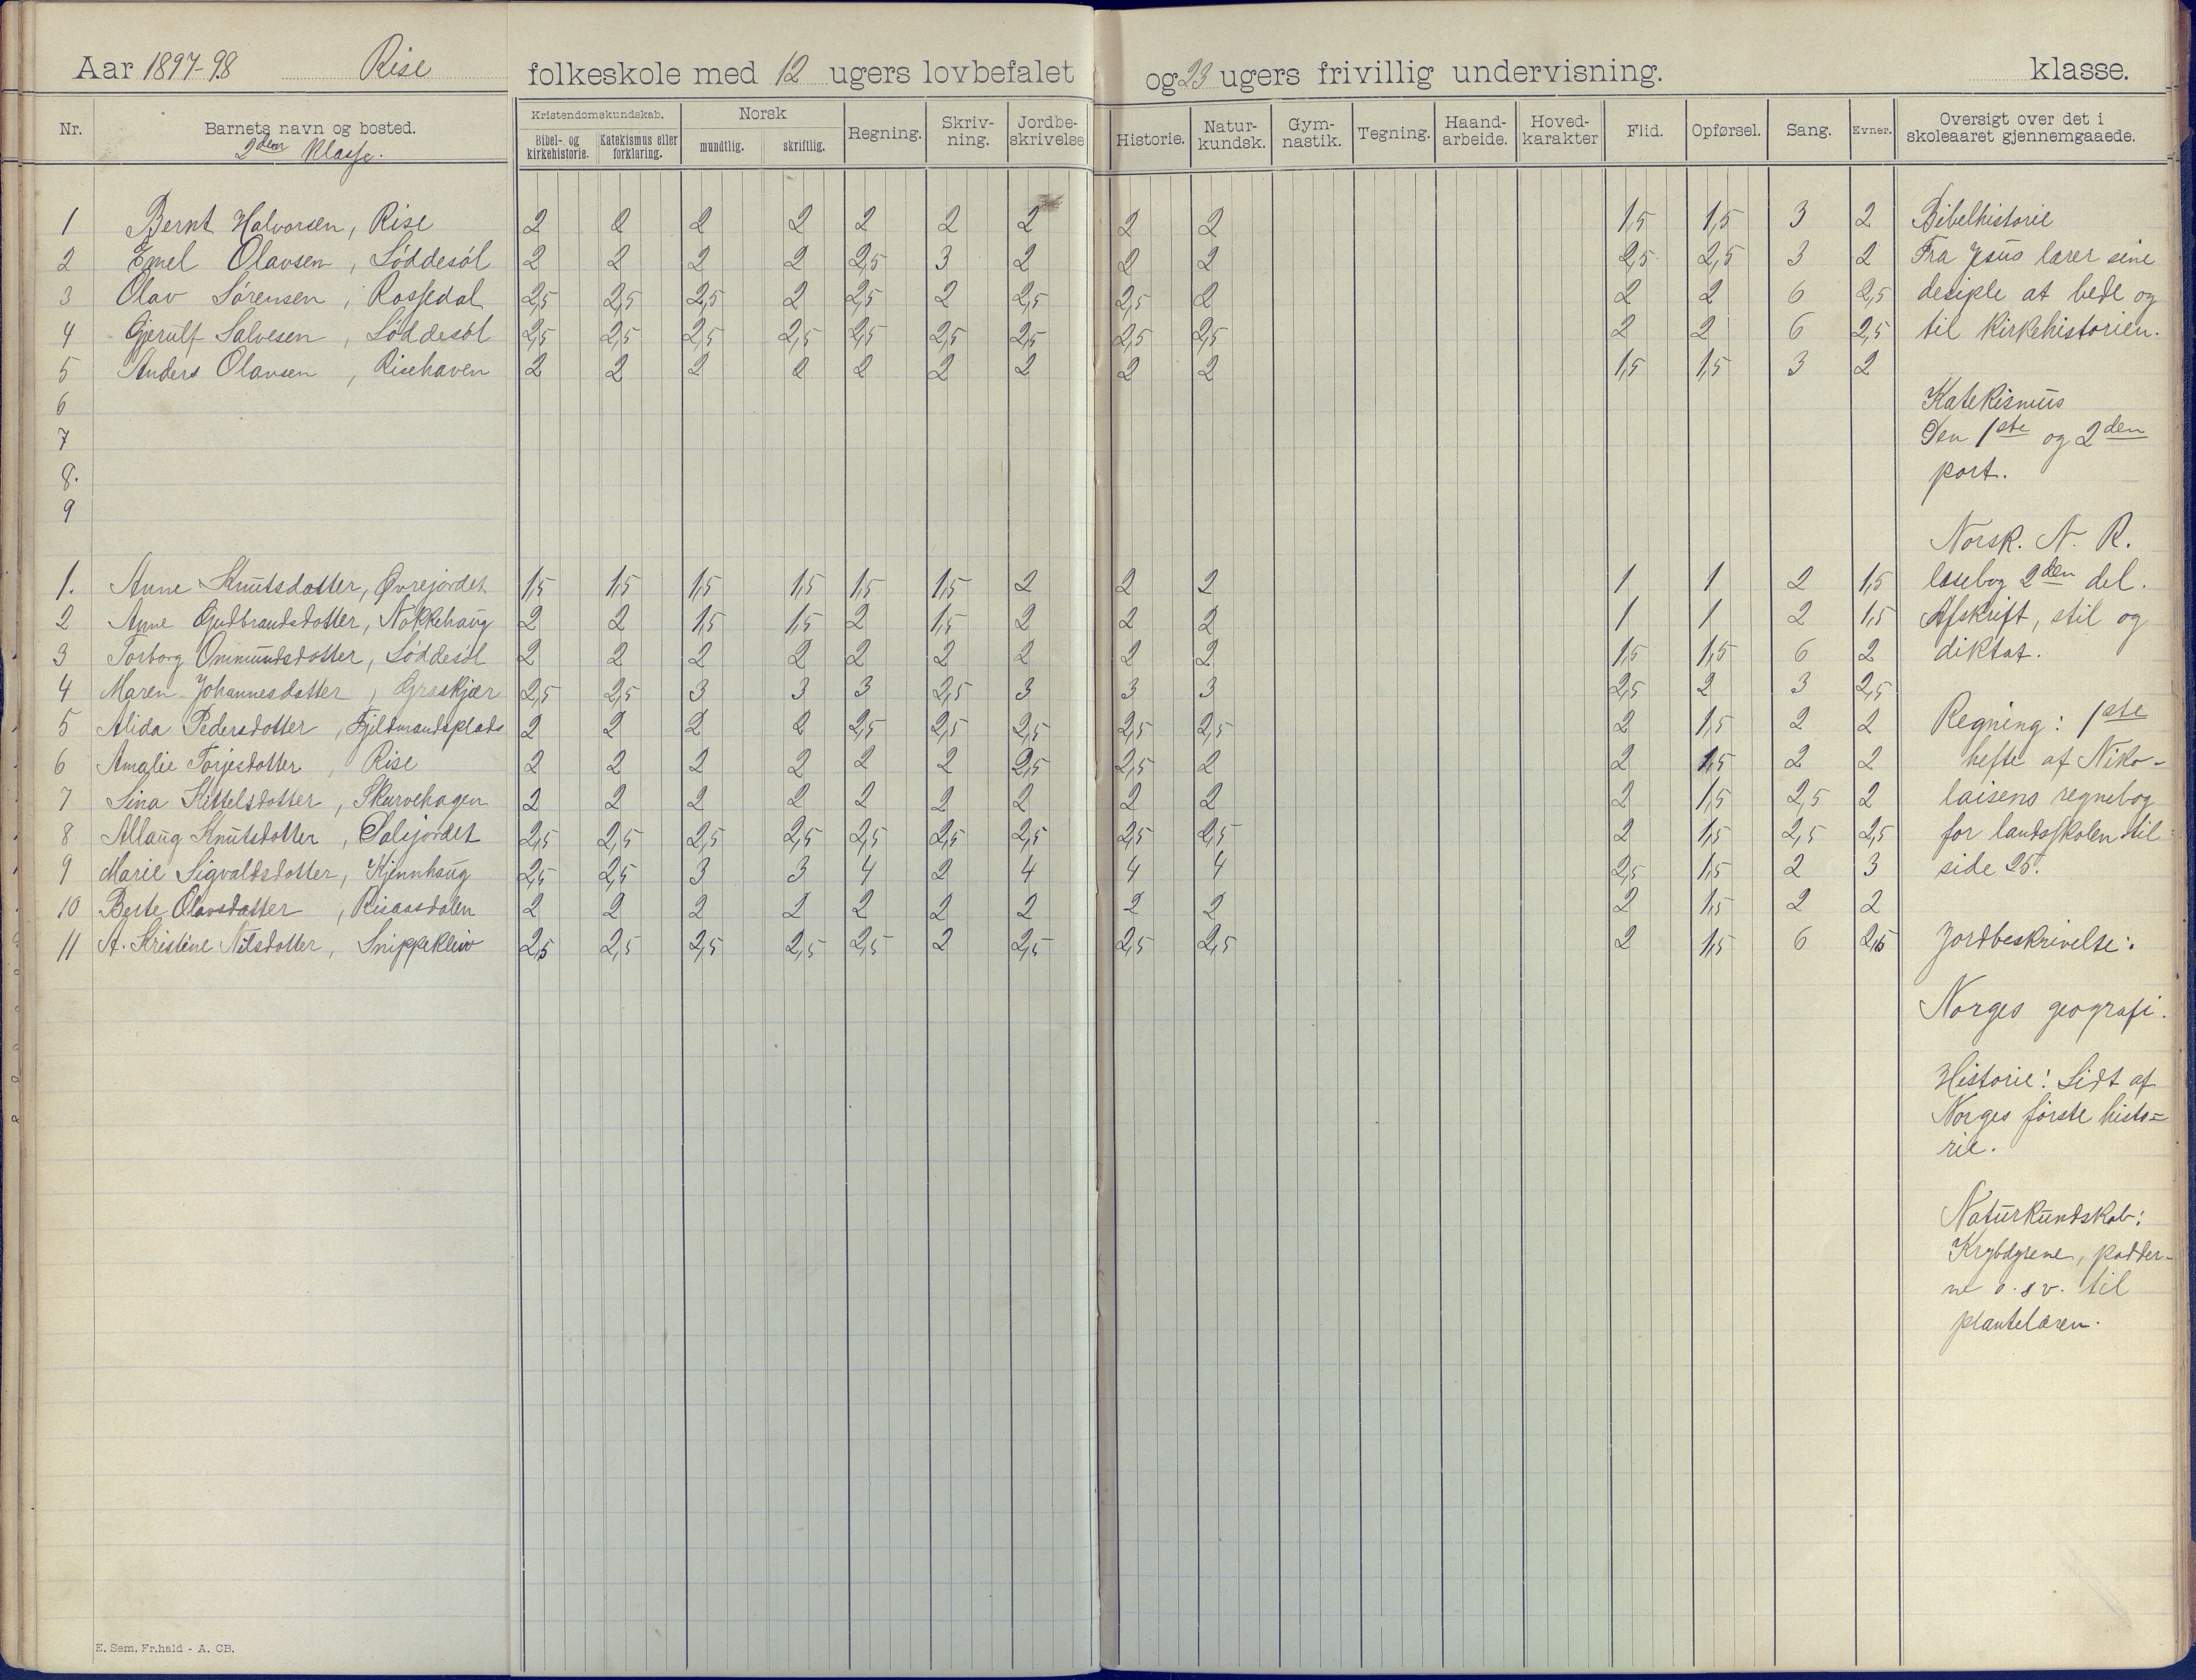 Aar 1897-98 Rise folkeskole med 12 ugers lovbefalet og 23 ugers frivillig undervisning. klasse.
Nr. Barnets navn og bosted. Kristendomskundskab. Bibel- og kirkehistorie. Katekismus eller forklaring. Norsk mundtlig. skriftlig. Regning. Skriv-ning. Jordbe-skrivelse Historie. Natur-kundsk. Gym-nastik. Tegning. Haand-arbeide. Hoved-karakter Flid. Opførsel. Sang. Evner. Oversigt over det i skoleaaret gjennemgaaede.
2den Klasse.
1 Bernt Halvorsen, Rise 2 2 2 2 2 2 2 2 2 1,5 1,5 3 2 Bibelhistorie
2 Emel Olavsen, Løddesøl 2 2 2 2 2,5 3 2 2 2 2,5 2,5 3 2 Fra Jesus lærer sine
3 Olav Sørensen, Rossedal 2,5 2,5 2,5 2 2,5 2 2,5 2,5 2 2 2 6 2,5 desiple at bede og
4 Gjerulf Salvesen, Løddesøl 2,5 2,5 2,5 2,5 2,5 2,5 2,5 2,5 2,5 2 2 6 2,5 til kirkehistorien.
5 Anders Olavsen, Risehaven 2 2 2 2 2 2 2 2 2 1,5 1,5 3 2
6 Katekismus
7 Den 1ste og 2den
8. part.
9
Norsk. N. R.
1. Anne Knutsdotter, Øvrejordet 1,5 1,5 1,5 1,5 1,5 1,5 2 2 2 1 1 2 1,5 læsebog 2den del.
2 Anne Gudbrandsdotter, Nøkkehaug 2 2 1,5 1,5 2 1,5 2 2 2 1 1 2 1,5 Afskrift, stil og
3 Torborg Ommundsdotter, Løddesøl 2 2 2 2 2 2 2 2 2 1,5 1,5 6 2 diktat.
4 Maren Johannesdatter, Graskjær 2,5 2,5 3 3 3 2,5 3 3 3 2,5 2 3 2,5
5 Alida Pedersdotter, Fjeldmandsplads 2 2 2 2 2,5 2,5 2,5 2,5 2,5 2 1,5 2 2 Regning: 1ste
6 Amalie Torjesdotter, Rise 2 2 2 2 2 2 2,5 2,5 2 2 1,5 2 2 hefte af Niko-
7 Sina Kittelsdotter, Skurvehagen 2 2 2 2 2 2 2 2 2 2 1,5 2,5 2 laisens regnebog
8 Allaug Knutsdotter, Salejordet 2,5 2,5 2,5 2,5 2,5 2,5 2,5 2,5 2,5 2 1,5 2,5 2,5 for landsskolen til
9 Marie Sigvaldsdotter, Kjennhaug 2,5 2,5 3 3 4 2 4 4 4 2,5 1,5 2 3 side 25.
10 Berte Olavsdatter, Risaasdalen 2 2 2 2 2 2 2 2 2 2 1,5 2 2
11 A. Kristine Nilsdotter, Snippekleiv 2,5 2,5 2,5 2,5 2,5 2 2,5 2,5 2,5 2 1,5 6 2,5 Jordbeskrivelse:
Norges geografi.
Historie: Lidt af
Norges første histo=
rie.
Naturkundskab:
Krybdyrene, padder-
ne o.sv. til
plantelæren.
E. Sem, Fr.hald - A. CB.